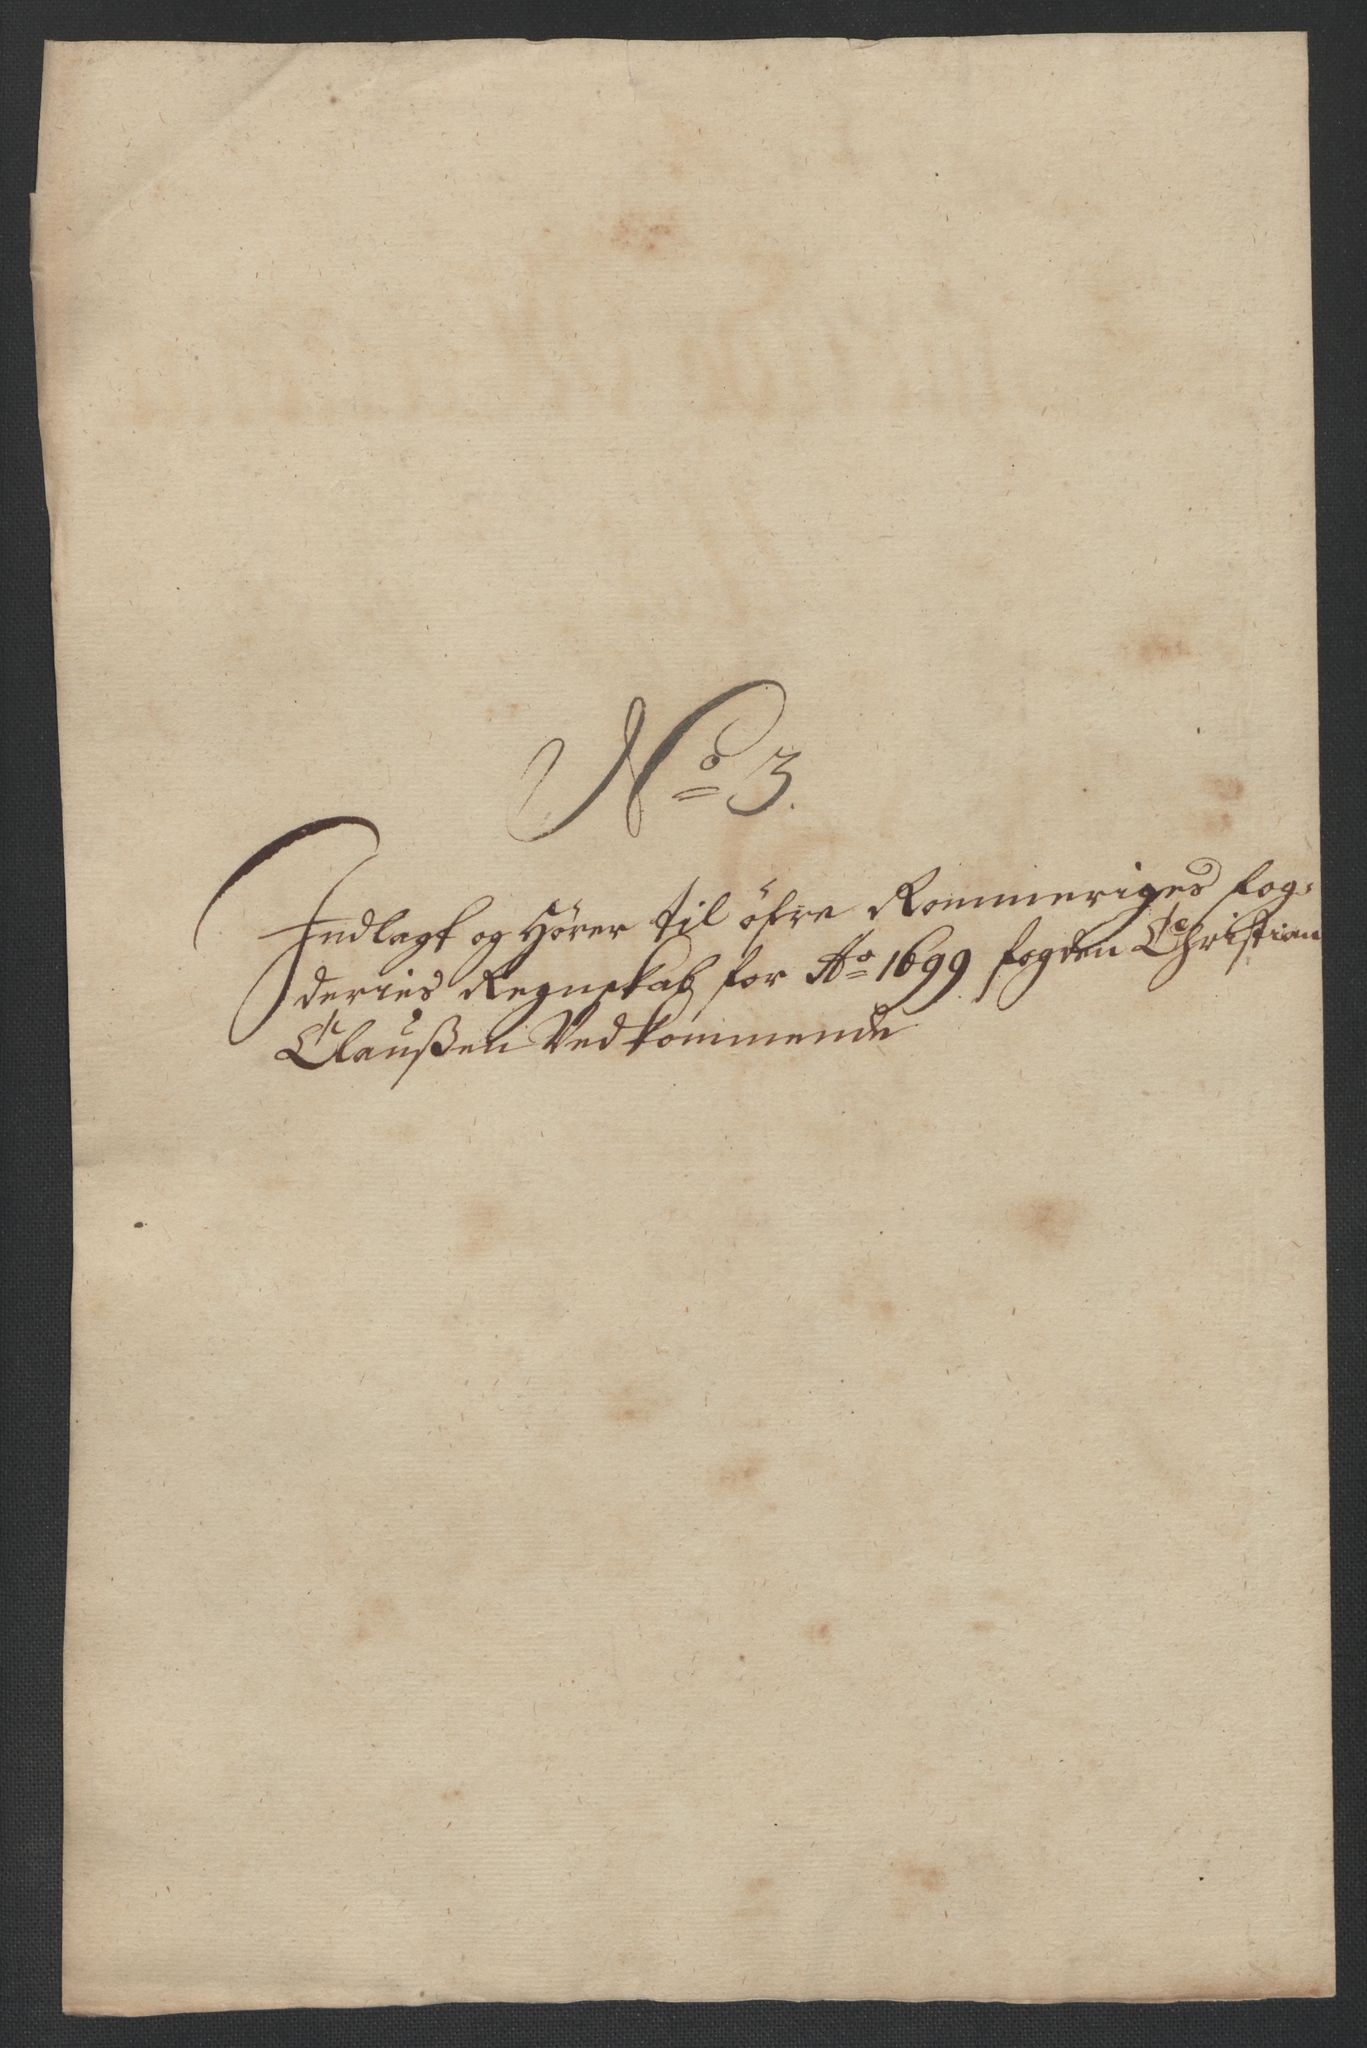 No 3.
Indlagt og Hörer til öfre Rommeriges fog:
deries Regnskab for Ao 1699 fogden Christian
Claußen Vedkommende